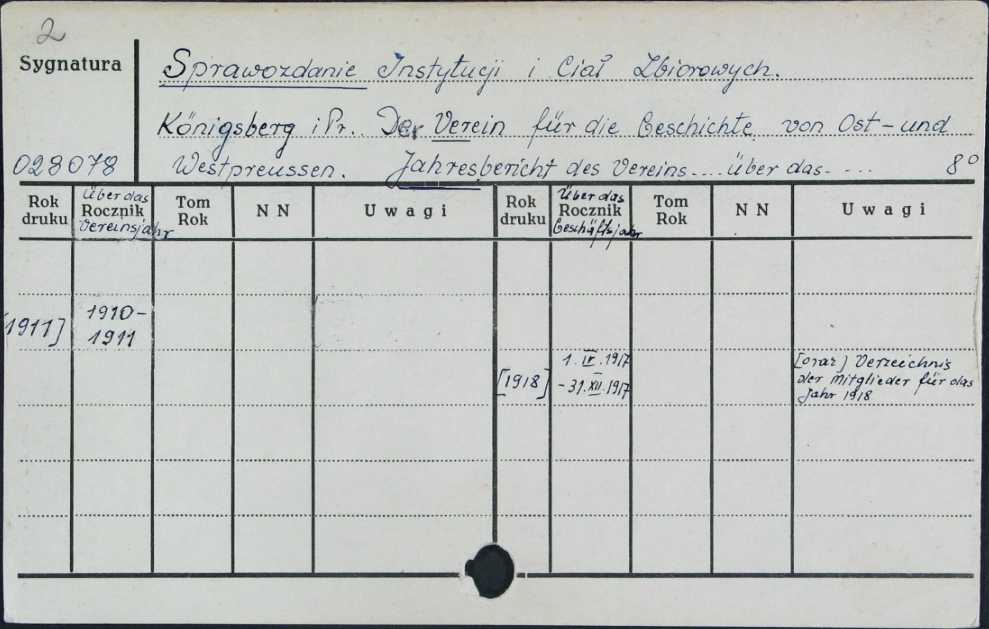 2
Sygnatura
Sprawozdanie Instytucji i Ciał Zbiorowych.
Königsberg i Pr. Der Verein für die Geschichte von Ost- und
028078 Westpreussen. Jahresbericht des Vereins.... über das..... 8°
Rok druku | Über das Rocznik Vereinsjahr | Tom Rok | NN | Uwagi | Rok druku | Über das Rocznik Geschäftsjahr | Tom Rok | NN | Uwagi
[1911] 1910-
1911
[1918] 1.IV.1917 [oraz] Verzeichnis
- 31.XII.1917 der Mitglieder für das
Jahr 1918